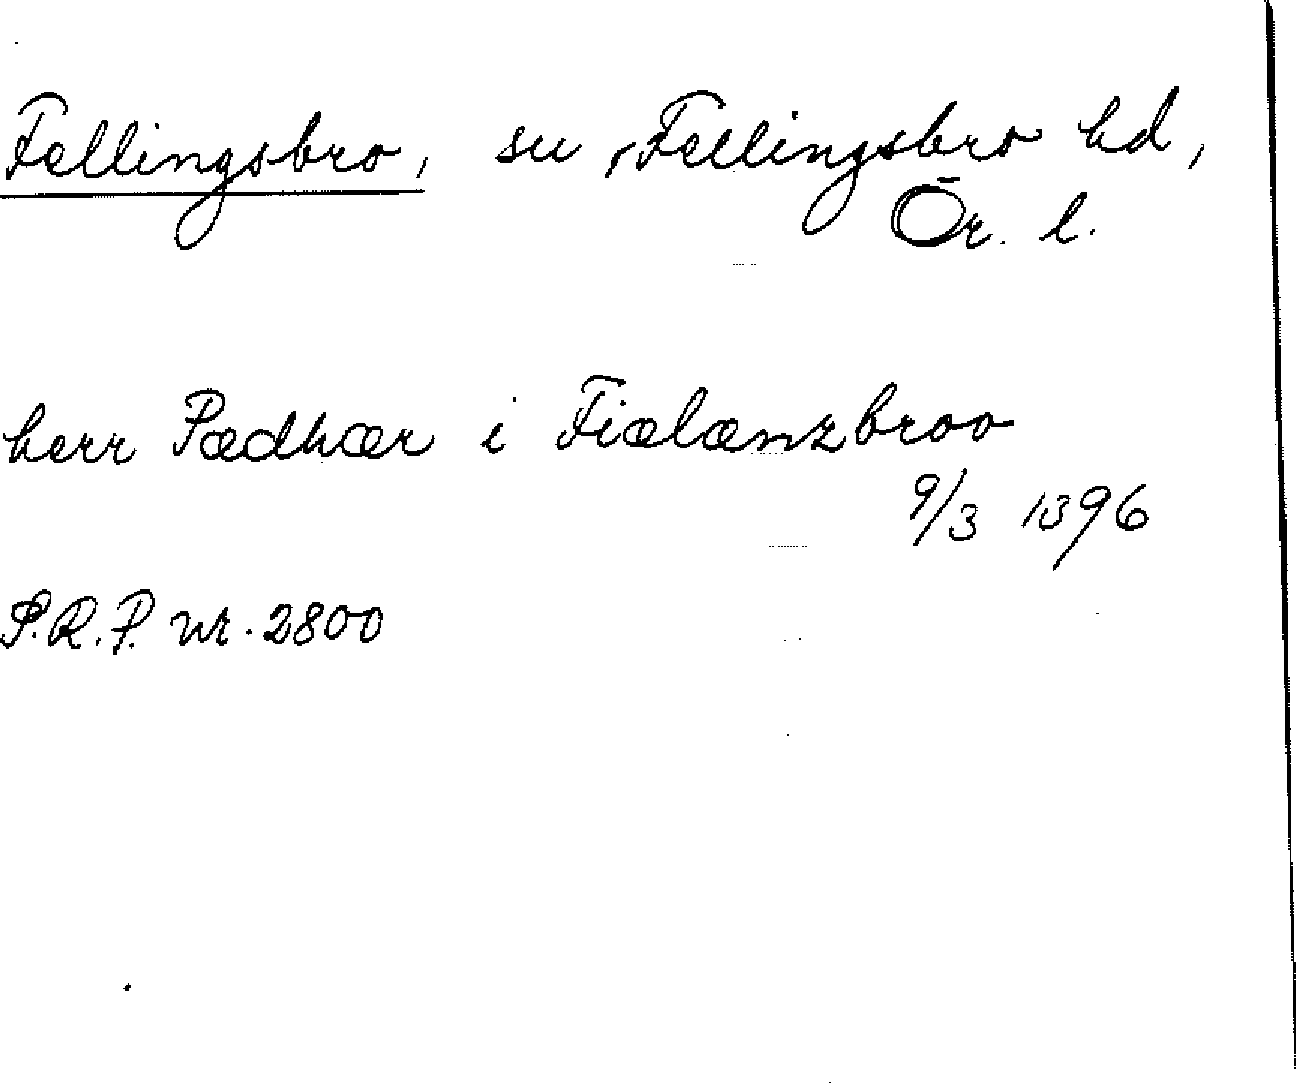 Fellingsbro, sn, Fellingsbro hd,
Ör. l.
herr Pædhær i Fiælænzbroo
9/3 1396
P.R.P. nr. 2800